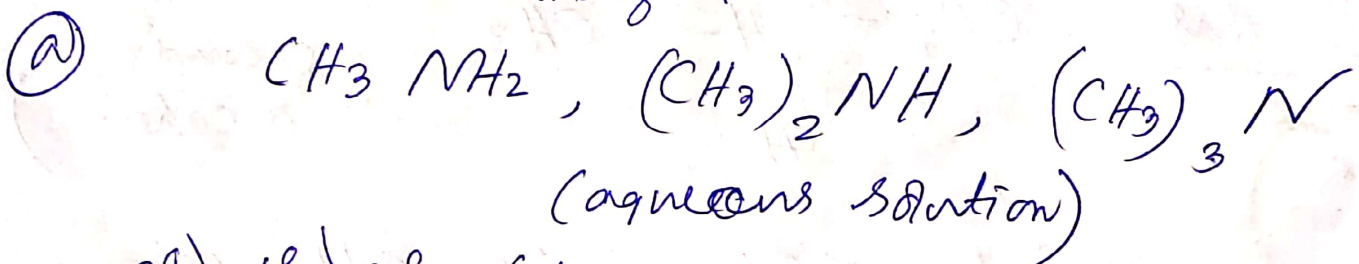 (a) CH3 NH2, (CH3)2 NH, (CH3)3 N
(aqueous solution)